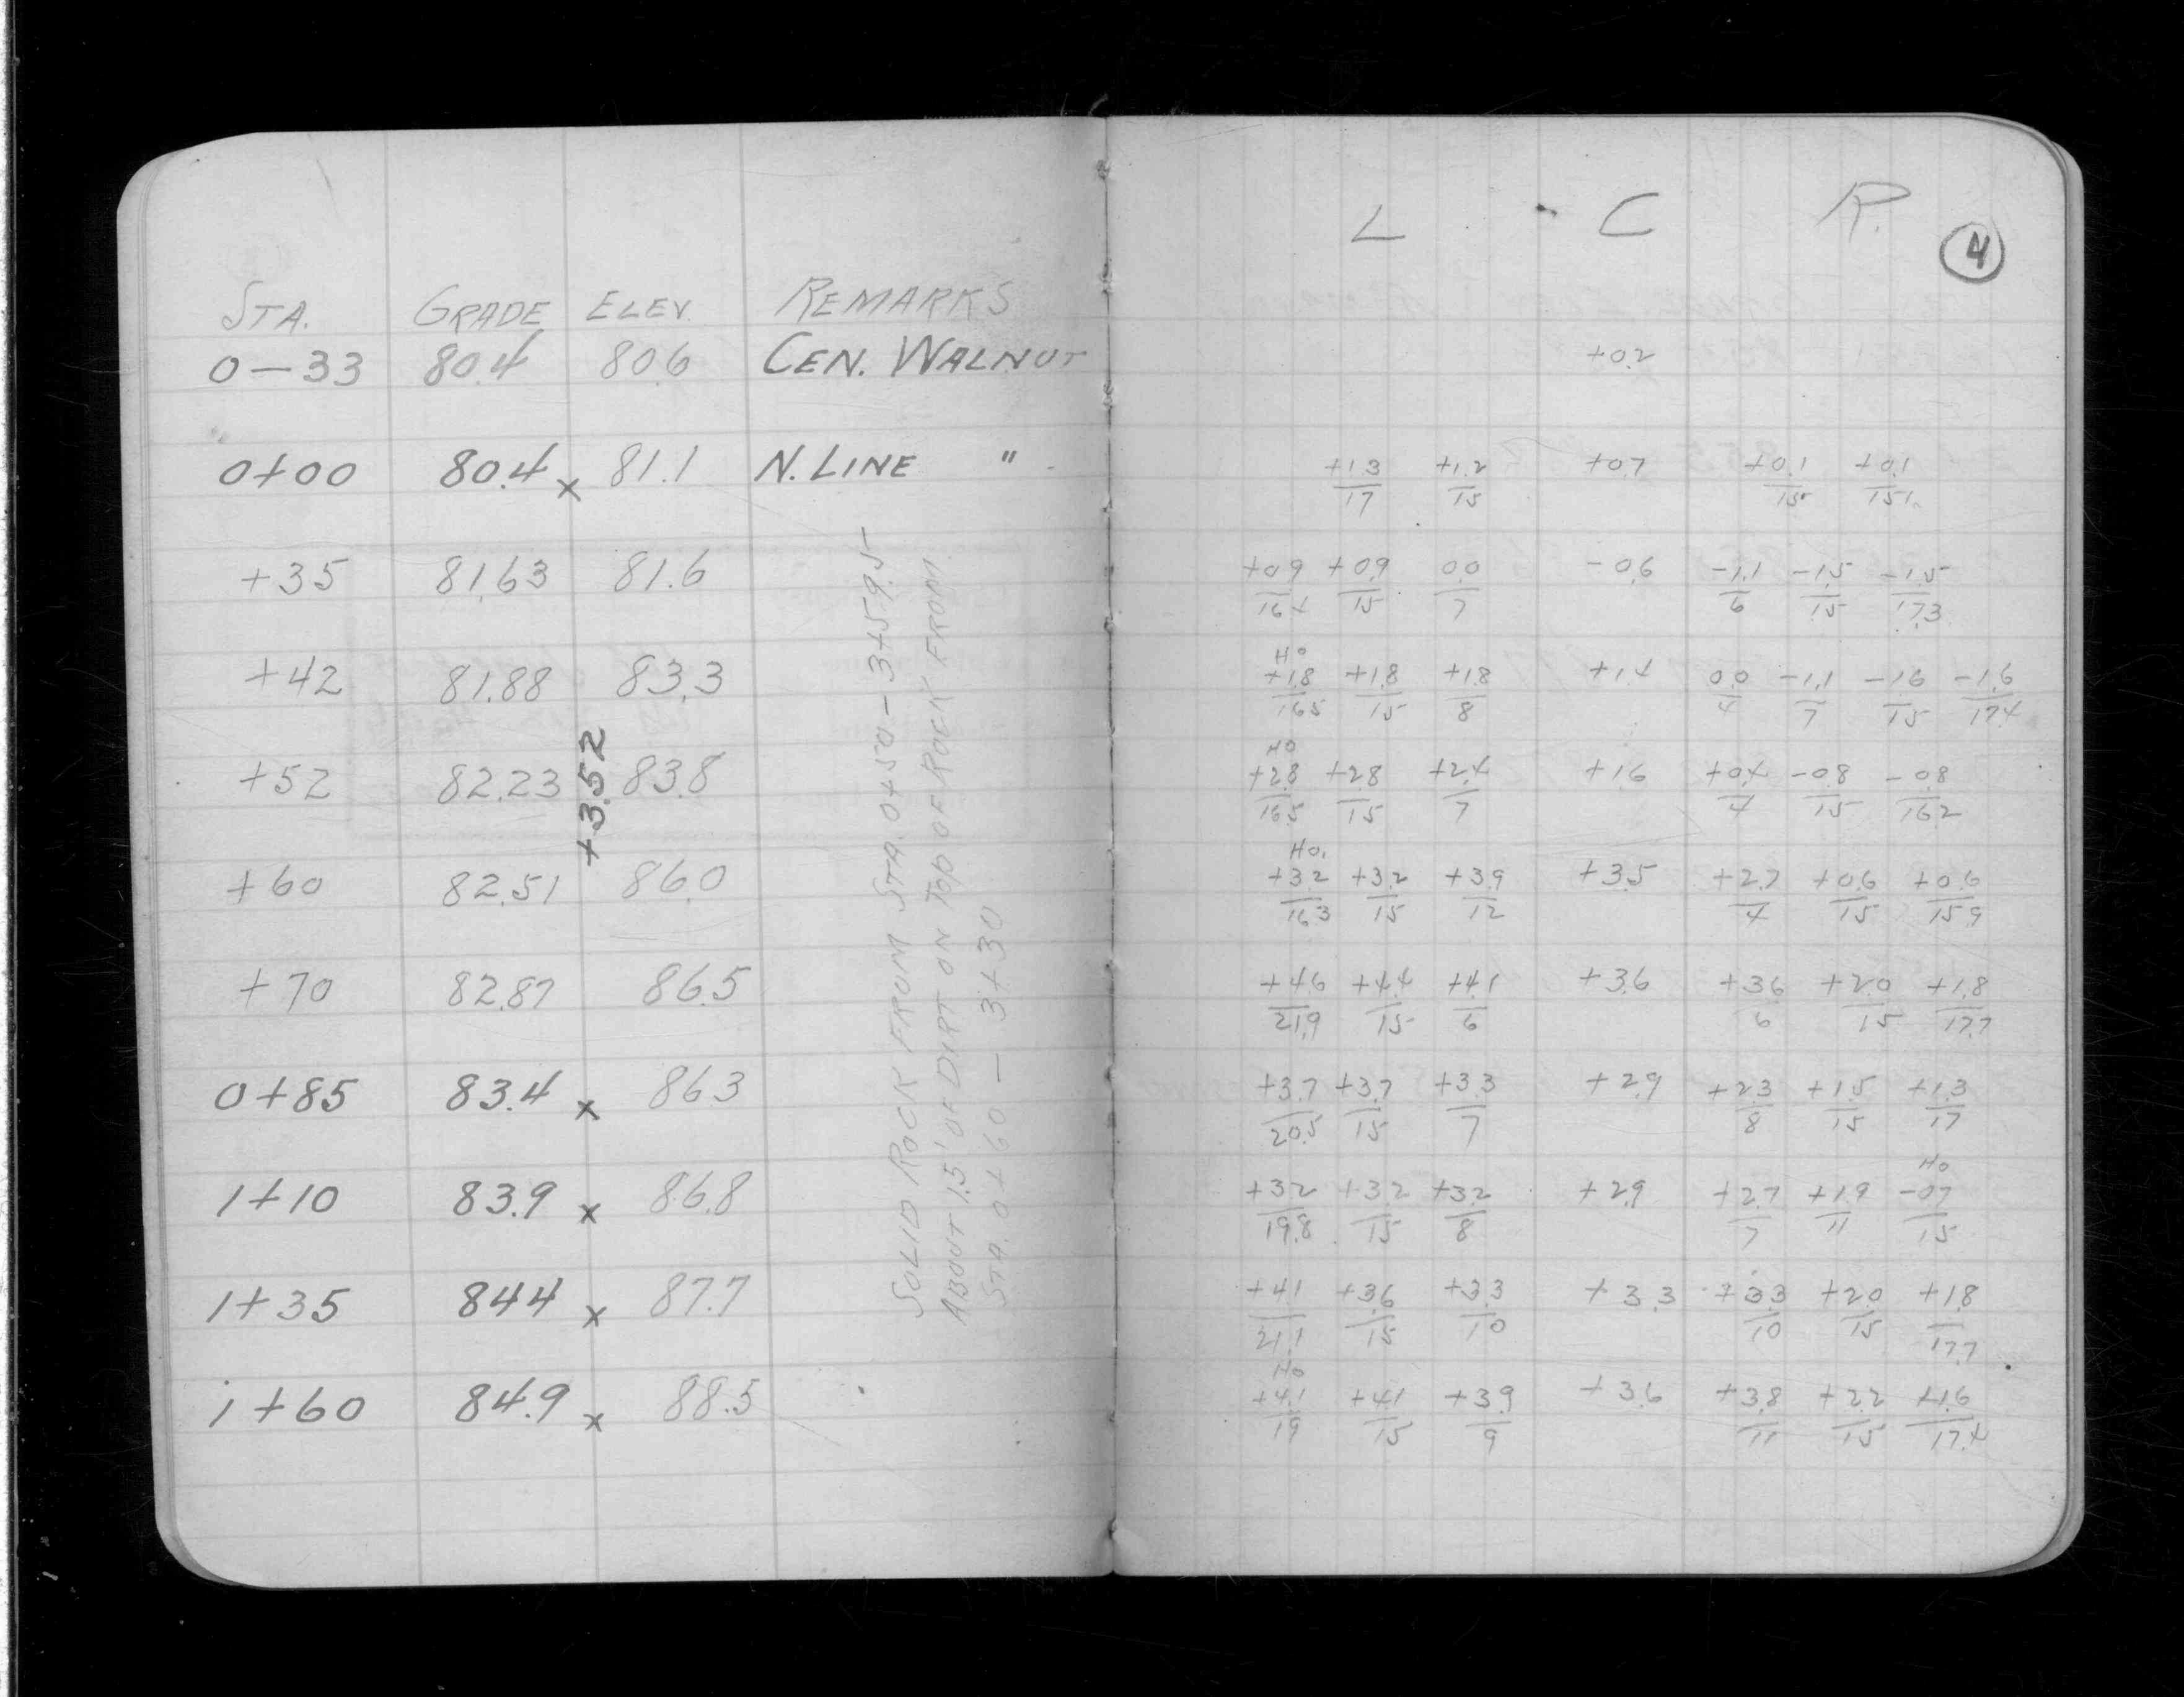 STA. GRADE ELEV. REMARKS
0-33 80.4 80.6 CEN. WALNUT
0+00 80.4 x 81.1 N. LINE "
+35 81.63 81.6
+42 81.88 83.3
+52 82.23 83.8
+60 82.51 86.0
+70 82.87 86.5
0+85 83.4 x 86.3
1+10 83.9 x 86.8
1+35 84.4 x 87.7
1+60 84.9 x 88.5
+3.52
SOLID ROCK FROM STA. 0+50 - 3+59.5
ABOUT 1.5' OF DIRT ON TOP OF ROCK FROM
STA. 0+60 - 3+30
L C R.
4
+0.2
+1.3 +1.2 +0.7 +0.1 +0.1
17 15 15 15.1
+0.9 +0.9 0.0 -0.6 -1.1 -1.5 -1.5
16.4 15 7 6 15 17.3
HO
+1.8 +1.8 +1.8 +1.4 0.0 -1.1 -1.6 -1.6
16.5 15 8 4 7 15 17.4
HO
+2.8 +2.8 +2.4 +1.6 +0.4 -0.8 -0.8
16.5 15 7 4 15 16.2
HO.
+3.2 +3.2 +3.9 +3.5 +2.7 +0.6 +0.6
16.3 15 12 4 15 15.9
+4.6 +4.4 +4.1 +3.6 +3.6 +2.0 +1.8
21.9 15 6 6 15 17.7
+3.7 +3.7 +3.3 +2.9 +2.3 +1.5 +1.3
20.5 15 7 8 15 17
HO
+3.2 +3.2 +3.2 +2.9 +2.7 +1.9 -0.7
19.8 15 8 7 11 15
+4.1 +3.6 +3.3 +3.3 +3.3 +2.0 +1.8
21.1 15 10 10 15 17.7
HO
+4.1 +4.1 +3.9 +3.6 +3.8 +2.2 +1.6
19 15 9 11 15 17.4